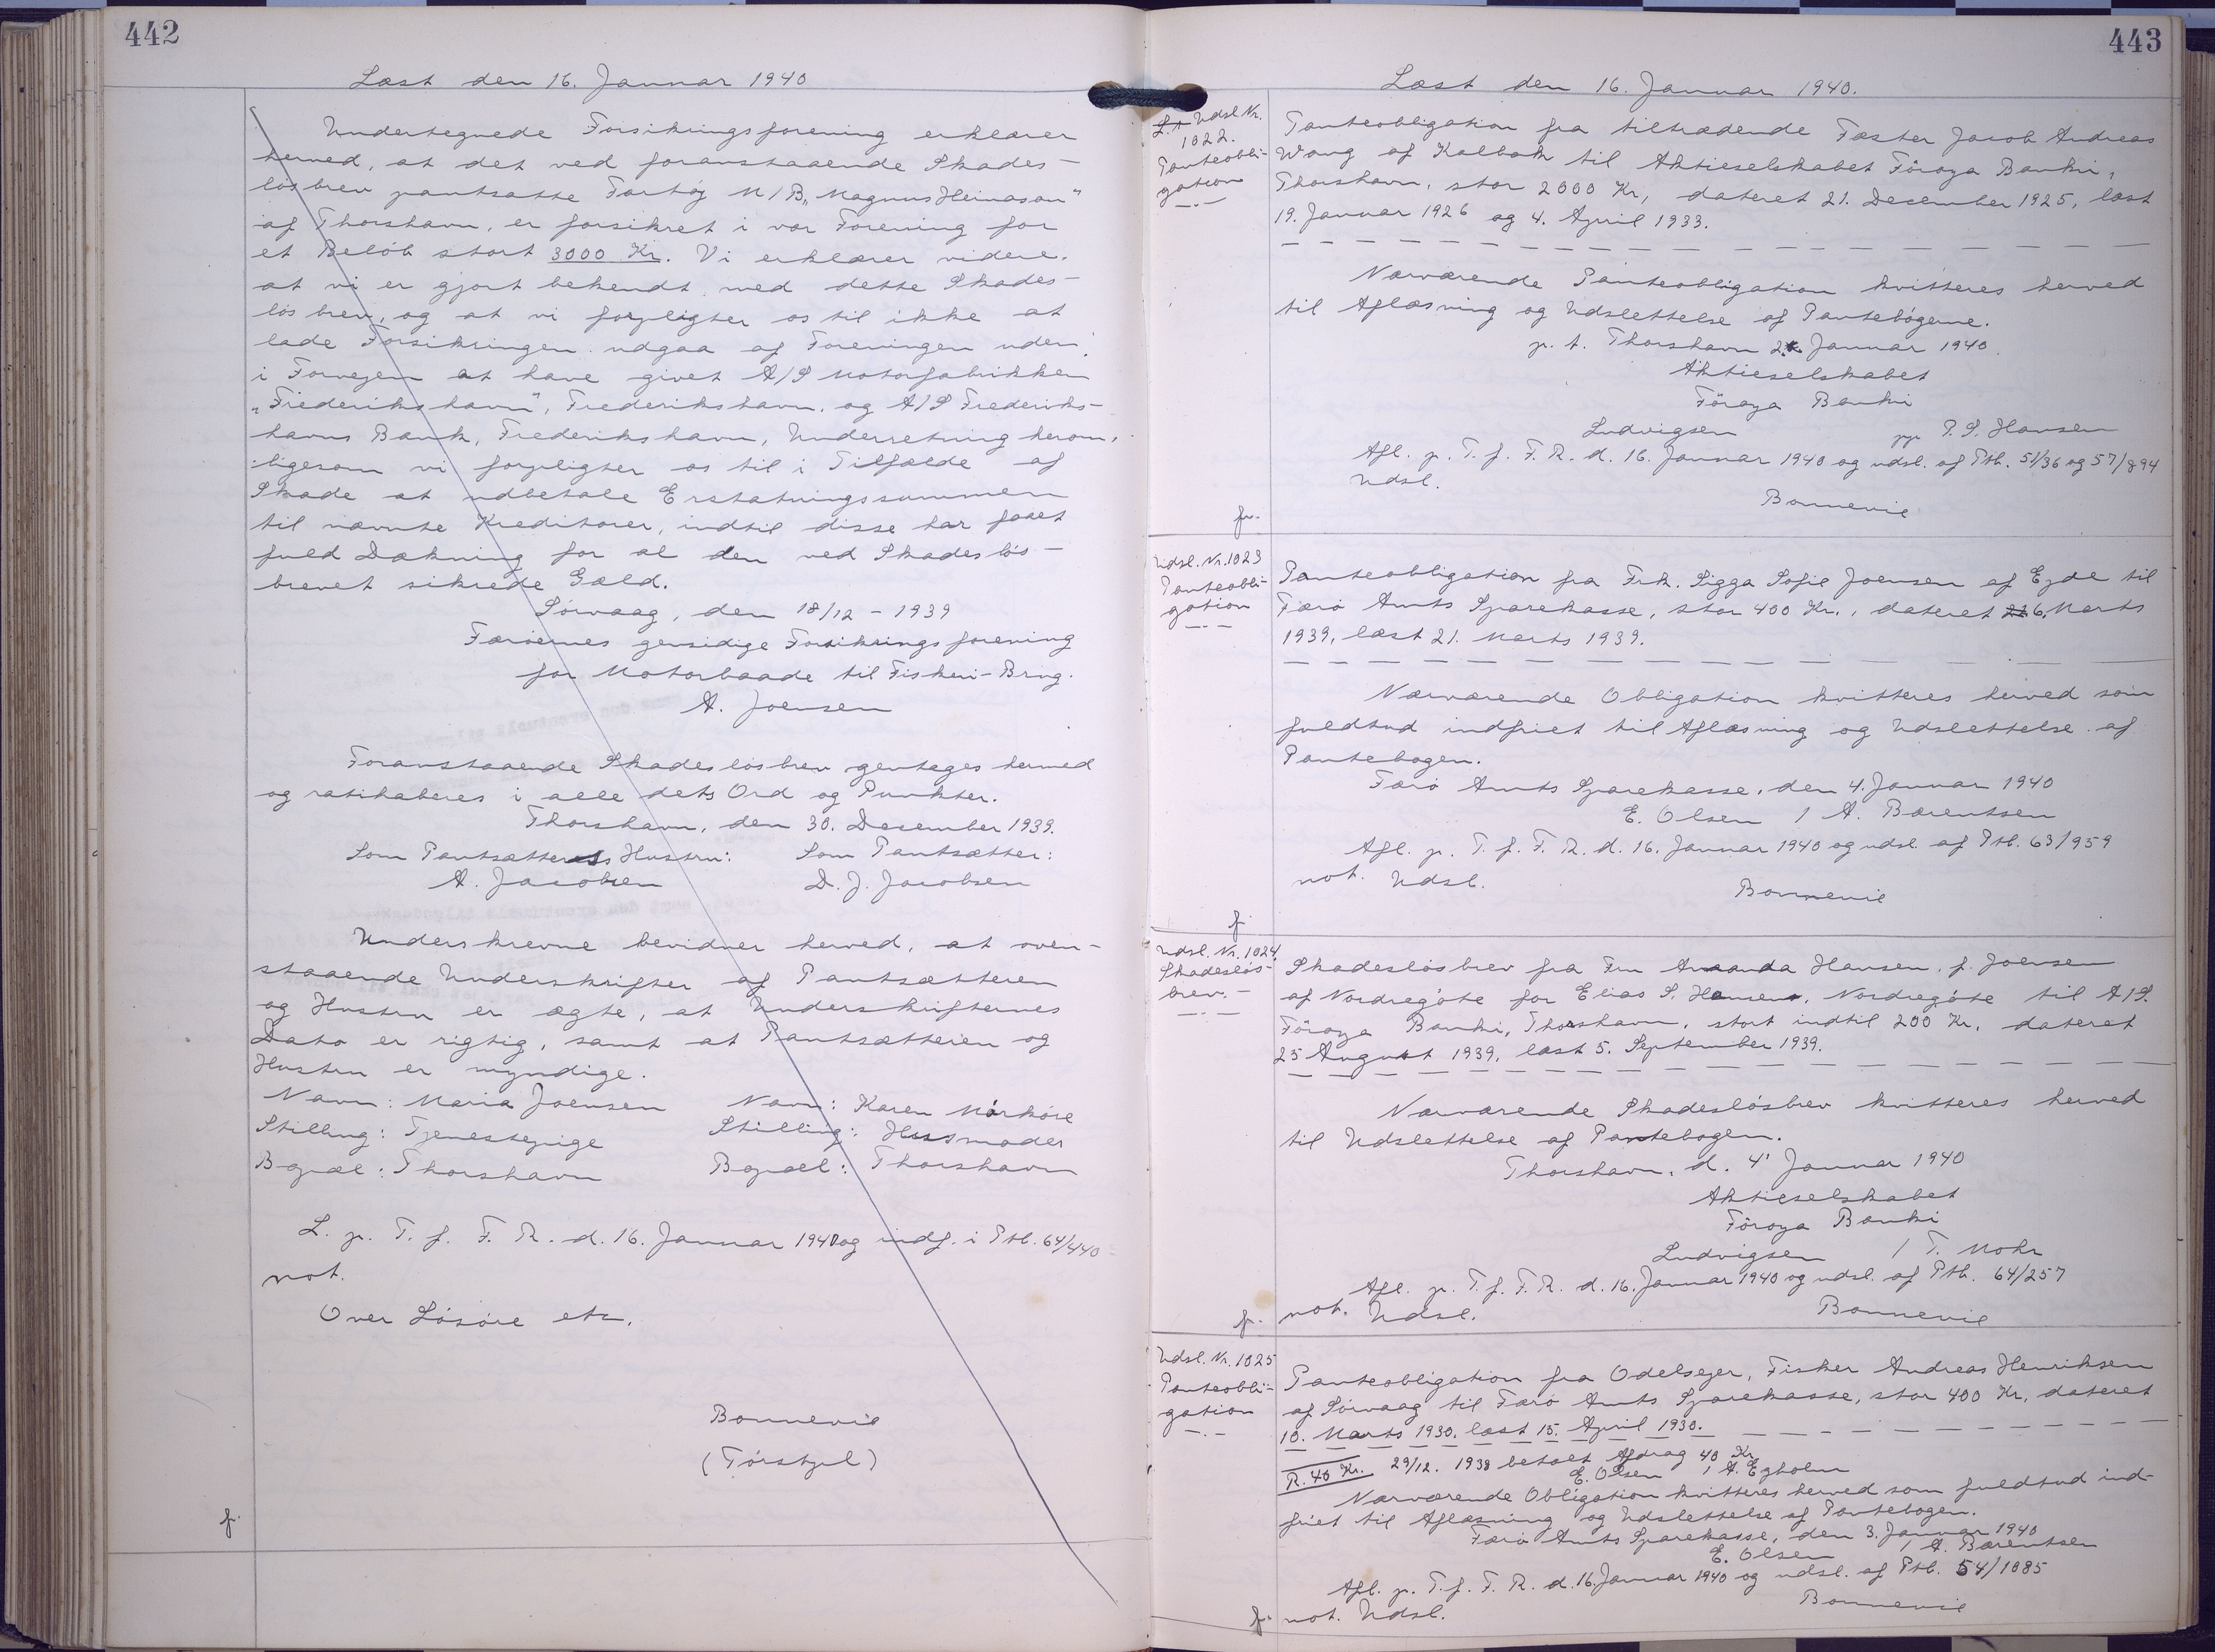 442
Læst den 16. Januar 1940
Undertegnede Forsikringsforening erklærer
herved, at det ved foranstaaende Skades-
lösbrev pantsatte Fartöj M/B „Magnus Heinason"
af Thorshavn, er forsikret i vor Forening for
et Belöb stort 3000 Kr. Vi erklærer videre.
at vi er gjort bekendt med dette Skades-
lös brev, og at vi forpligter os til ikke at
lade Forsikringen udgaa af Foreningen uden
i Forvejen at have givet A/S Motorfabrikken
„Frederikshavn", Frederikshavn, og A/S Frederiks-
havns Bank, Frederikshavn, Underretning herom,
ligesom vi forpligter os til i Tilfælde af
Skade at udbetale Erstatningssummen
til nævnte Kreditorer, indtil disse har faaet
fuld Dækning for al den ved Skadeslös-
brevet sikrede Gæld.
Sörvaag, den 18/12 - 1939
Færöernes gensidige Forsikringsforening
for Motorbaade til Fiskeri-Brug.
A. Joensen
Foranstaaende Skadeslösbrev gentages herved
og ratihaberes i alle dets Ord og Punkter.
Thorshavn, den 30. Desember 1939.
Som Pantsætterens Hustru: Som Pantsætter:
A. Jacobsen D. J. Jacobsen
Underskrevne bevidner herved, at oven-
staaende Underskrifter af Pantsætteren
og Hustru er ægte, at Underskrifternes
Dato er rigtig, samt at Pantsætteren og
Hustru er myndige.
Navn: Maria Joensen Navn: Karen Mörköre
Stilling: Tjenestepige Stilling: Husmoder
Bopæl: Thorshavn Bopæl: Thorshavn
L. p. T. f. F. R. d. 16. Januar 1940 og indf. i Ptb. 64/440
not.
Over Lösöre etc.
Bonnevie
(Förstgel)
f.
443
Læst den 16. Januar 1940.
Udsl Nr.
1022.
Panteobli-
gation
Panteobligation fra tiltrædende Fæster Jacob Andreas
Wang af Kalbak til Aktieselskabet Föroya Banki,
Thorshavn, stor 2000 Kr, dateret 21. Desember 1925, læst
19. Januar 1926 og 4. April 1933.
Nærværende Panteobligation kvitteres herved
til Aflæsning og Udslettelse af Pantebögerne.
p. t. Thorshavn 2. Januar 1940.
Aktieselskabet
Föroya Banki
Ludvigsen pp P. S. Hansen
Afl. p. T. f. F. R. d. 16. Januar 1940 og udsl. af Ptb. 51/36 og 57/894
Udsl.
Bonnevie
fr.
Udsl. Nr. 1023
Panteobli-
gation
Panteobligation fra Frk. Sigga Sofie Joensen af Ejde til
Færö Amts Sparekasse, stor 400 Kr., dateret 6. Marts
1939, læst 21. Marts 1939.
Nærværende Obligation kvitteres herved som
fuldtud indfriet til Aflæsning og Udslettelse af
Pantebogen.
Færö Amts Sparekasse, den 4. Januar 1940
E. Olsen / A. Bærentsen
Afl. p. T. f. F. R. d. 16. Januar 1940 og udsl. af Ptb. 63/959
not. Udsl.
Bonnevie
f.
Udsl. Nr. 1024
Skadeslös-
brev.
Skadeslösbrev fra Fru Amanda Hansen, f. Joensen
af Nordregöte for Elias S. Hansen, Nordregöte til A/S.
Föroya Banki, Thorshavn, stort indtil 200 Kr, dateret
25 August 1939, læst 5. September 1939.
Nærværende Skadeslösbrev kvitteres herved
til Udslettelse af Pantebogen.
Thorshavn, d. 4' Januar 1940
Aktieselskabet
Föroya Banki
Ludvigsen / T. Mohr
Afl. p. T. f. F. R. d. 16. Januar 1940 og udsl. af Ptb. 64/257
not. Udsl.
Bonnevie
fr.
Udsl. Nr. 1025
Panteobli-
gation
Panteobligation fra Odelsejer, Fisker Andreas Henriksen
af Sörvaag til Færö Amts Sparekasse, stor 400 Kr, dateret
10. Marts 1930, læst 15. April 1930.
R. 40 Kr. 29/12. 1938 betalt Afdrag 40 Kr.
E. Olsen / A. Egholm
Nærværende Obligation kvitteres herved som fuldtud ind-
friet til Aflæsning og Udslettelse af Pantebogen.
Færö Amts Sparekasse, den 3. Januar 1940
E. Olsen / A. Bærentsen
Afl. p. T. f. F. R. d. 16. Januar 1940 og udsl. af Ptb. 54/1085
not. Udsl.
Bonnevie
fr.